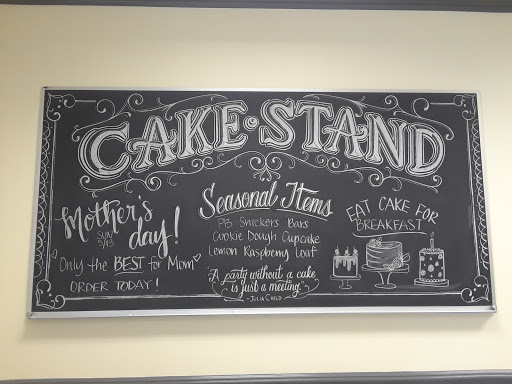 CAKE • STAND
Mother's
SUN
5/13
day!
Only the BEST for Mom
ORDER TODAY!
Seasonal Items
PB Snickers Bars
Cookie Dough Cupcake
Lemon Raspberry Loaf
"A party without a cake
is just a meeting."
-JULIA CHILD
EAT CAKE FOR
BREAKFAST